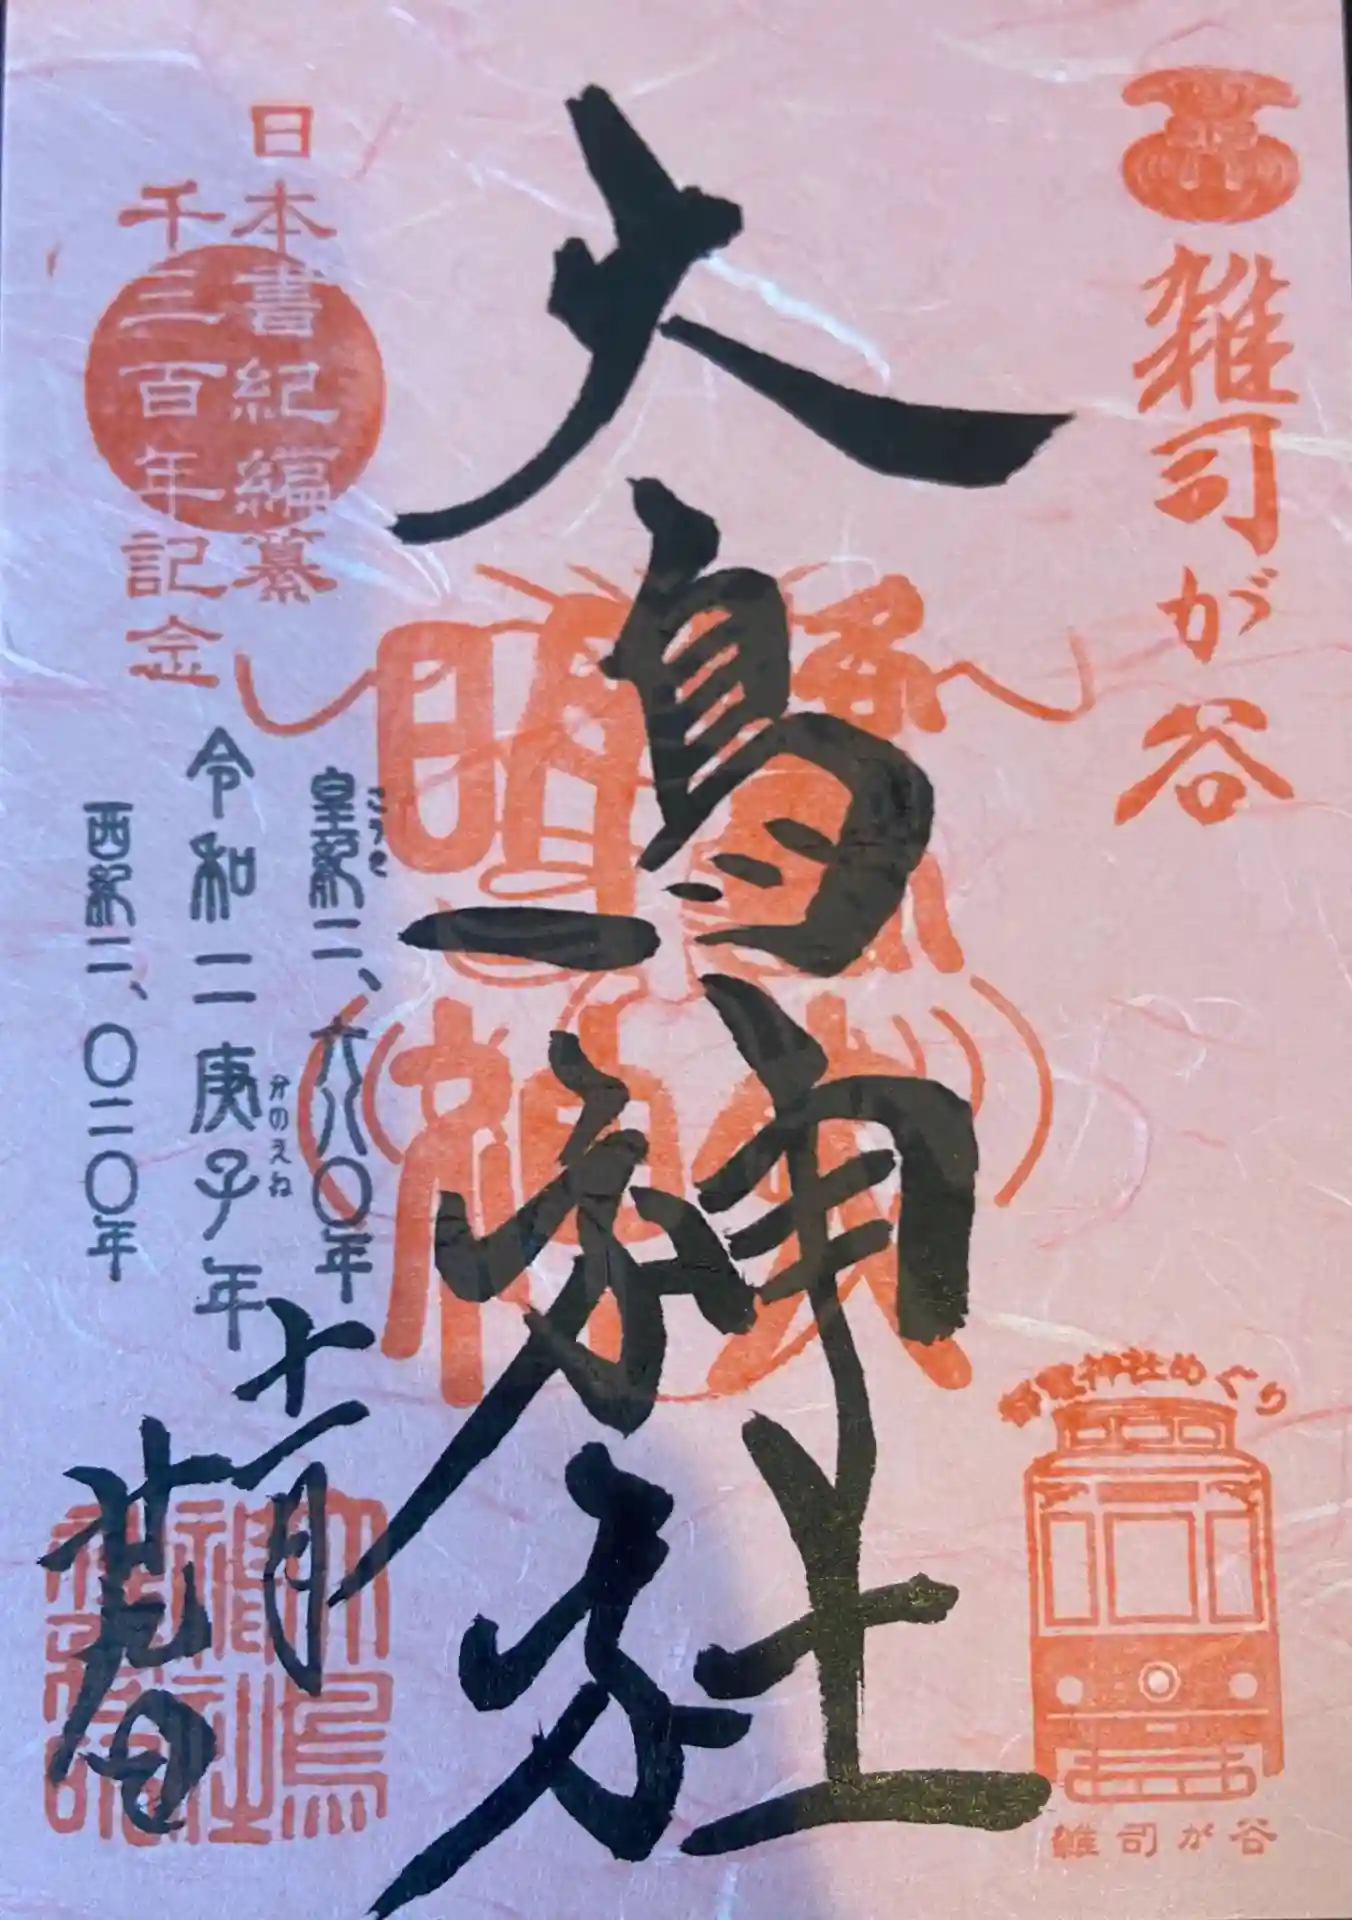 雑司が谷
大鳥神社
日本書紀編纂
千三百年記念
皇紀二、六八〇年
こうき
令和二庚子年
かのえね
西紀二、〇二〇年
十一月
都電神社めぐり
雑司が谷